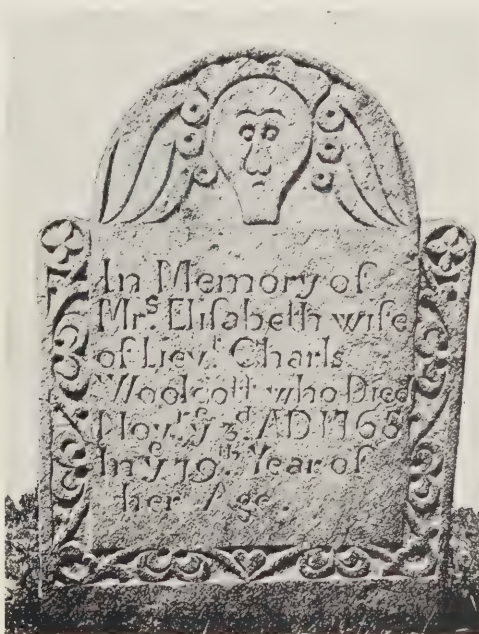 In Memory of
Mrs. Elisabeth wife
of Lievt. Charls
Woolcott who Died
Novr. ye 3d. AD 1765
In ye 79th. Year of
her Age.